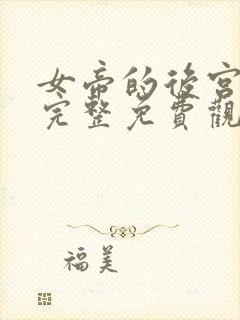 女帝的後宮
完整免費觀
福美